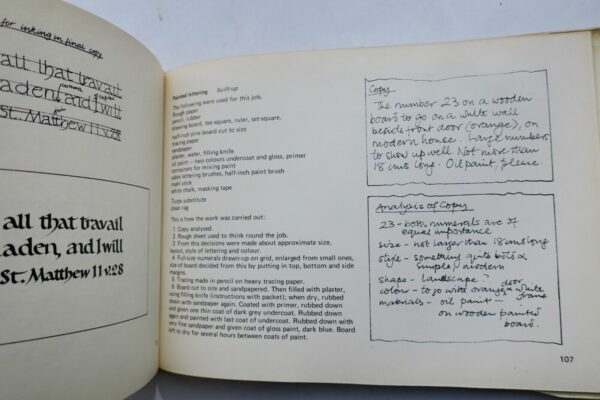 for inking in final copy
all that travail
aden, and I will
St. Matthew 11 v.28
all that travail
aden, and I will
St. Matthew 11 v.28
Painted lettering built-up
The following were used for this job.
Rough paper
pencil, rubber
drawing-board, tee-square, ruler, set-square
half-inch pine board cut to size
tracing paper
sandpaper
plaster, water, filling knife
oil paint – two colours undercoat and gloss, primer
containers for mixing paint
sable lettering brushes, half-inch paint brush
mahl stick
white chalk, masking tape
Turps substitute
clean rag
This is how the work was carried out:
1 Copy analysed.
2 Rough sheet used to think round the job.
3 From this decisions were made about approximate size,
layout, style of lettering and colour.
4 Full-size numerals drawn-up on grid, enlarged from small ones,
size of board decided from this by putting in top, bottom and side
margins.
5 Tracing made in pencil on heavy tracing paper.
6 Board cut to size and sandpapered. Then filled with plaster,
using filling knife (instructions with packet); when dry, rubbed
down with sandpaper again. Coated with primer, rubbed down
and given one thin coat of dark grey undercoat. Rubbed down
again and painted with last coat of undercoat. Rubbed down with
very fine sandpaper and given coat of gloss paint, dark blue. Board
left to dry for several hours between coats of paint.
Copy
The number 23 on a wooden
board to go on a white wall
beside front door (orange), on
modern house. Large numbers
to show up well. Not more than
18 ins long. Oil paint, please.
Analysis of Copy
23 - both numerals are of
equal importance
size - not larger than 18 ins long
style - something quite bold &
simple, modern
shape - landscape?
colour - to go with orange door & white
materials - oil paint
on wooden painted
board.
107